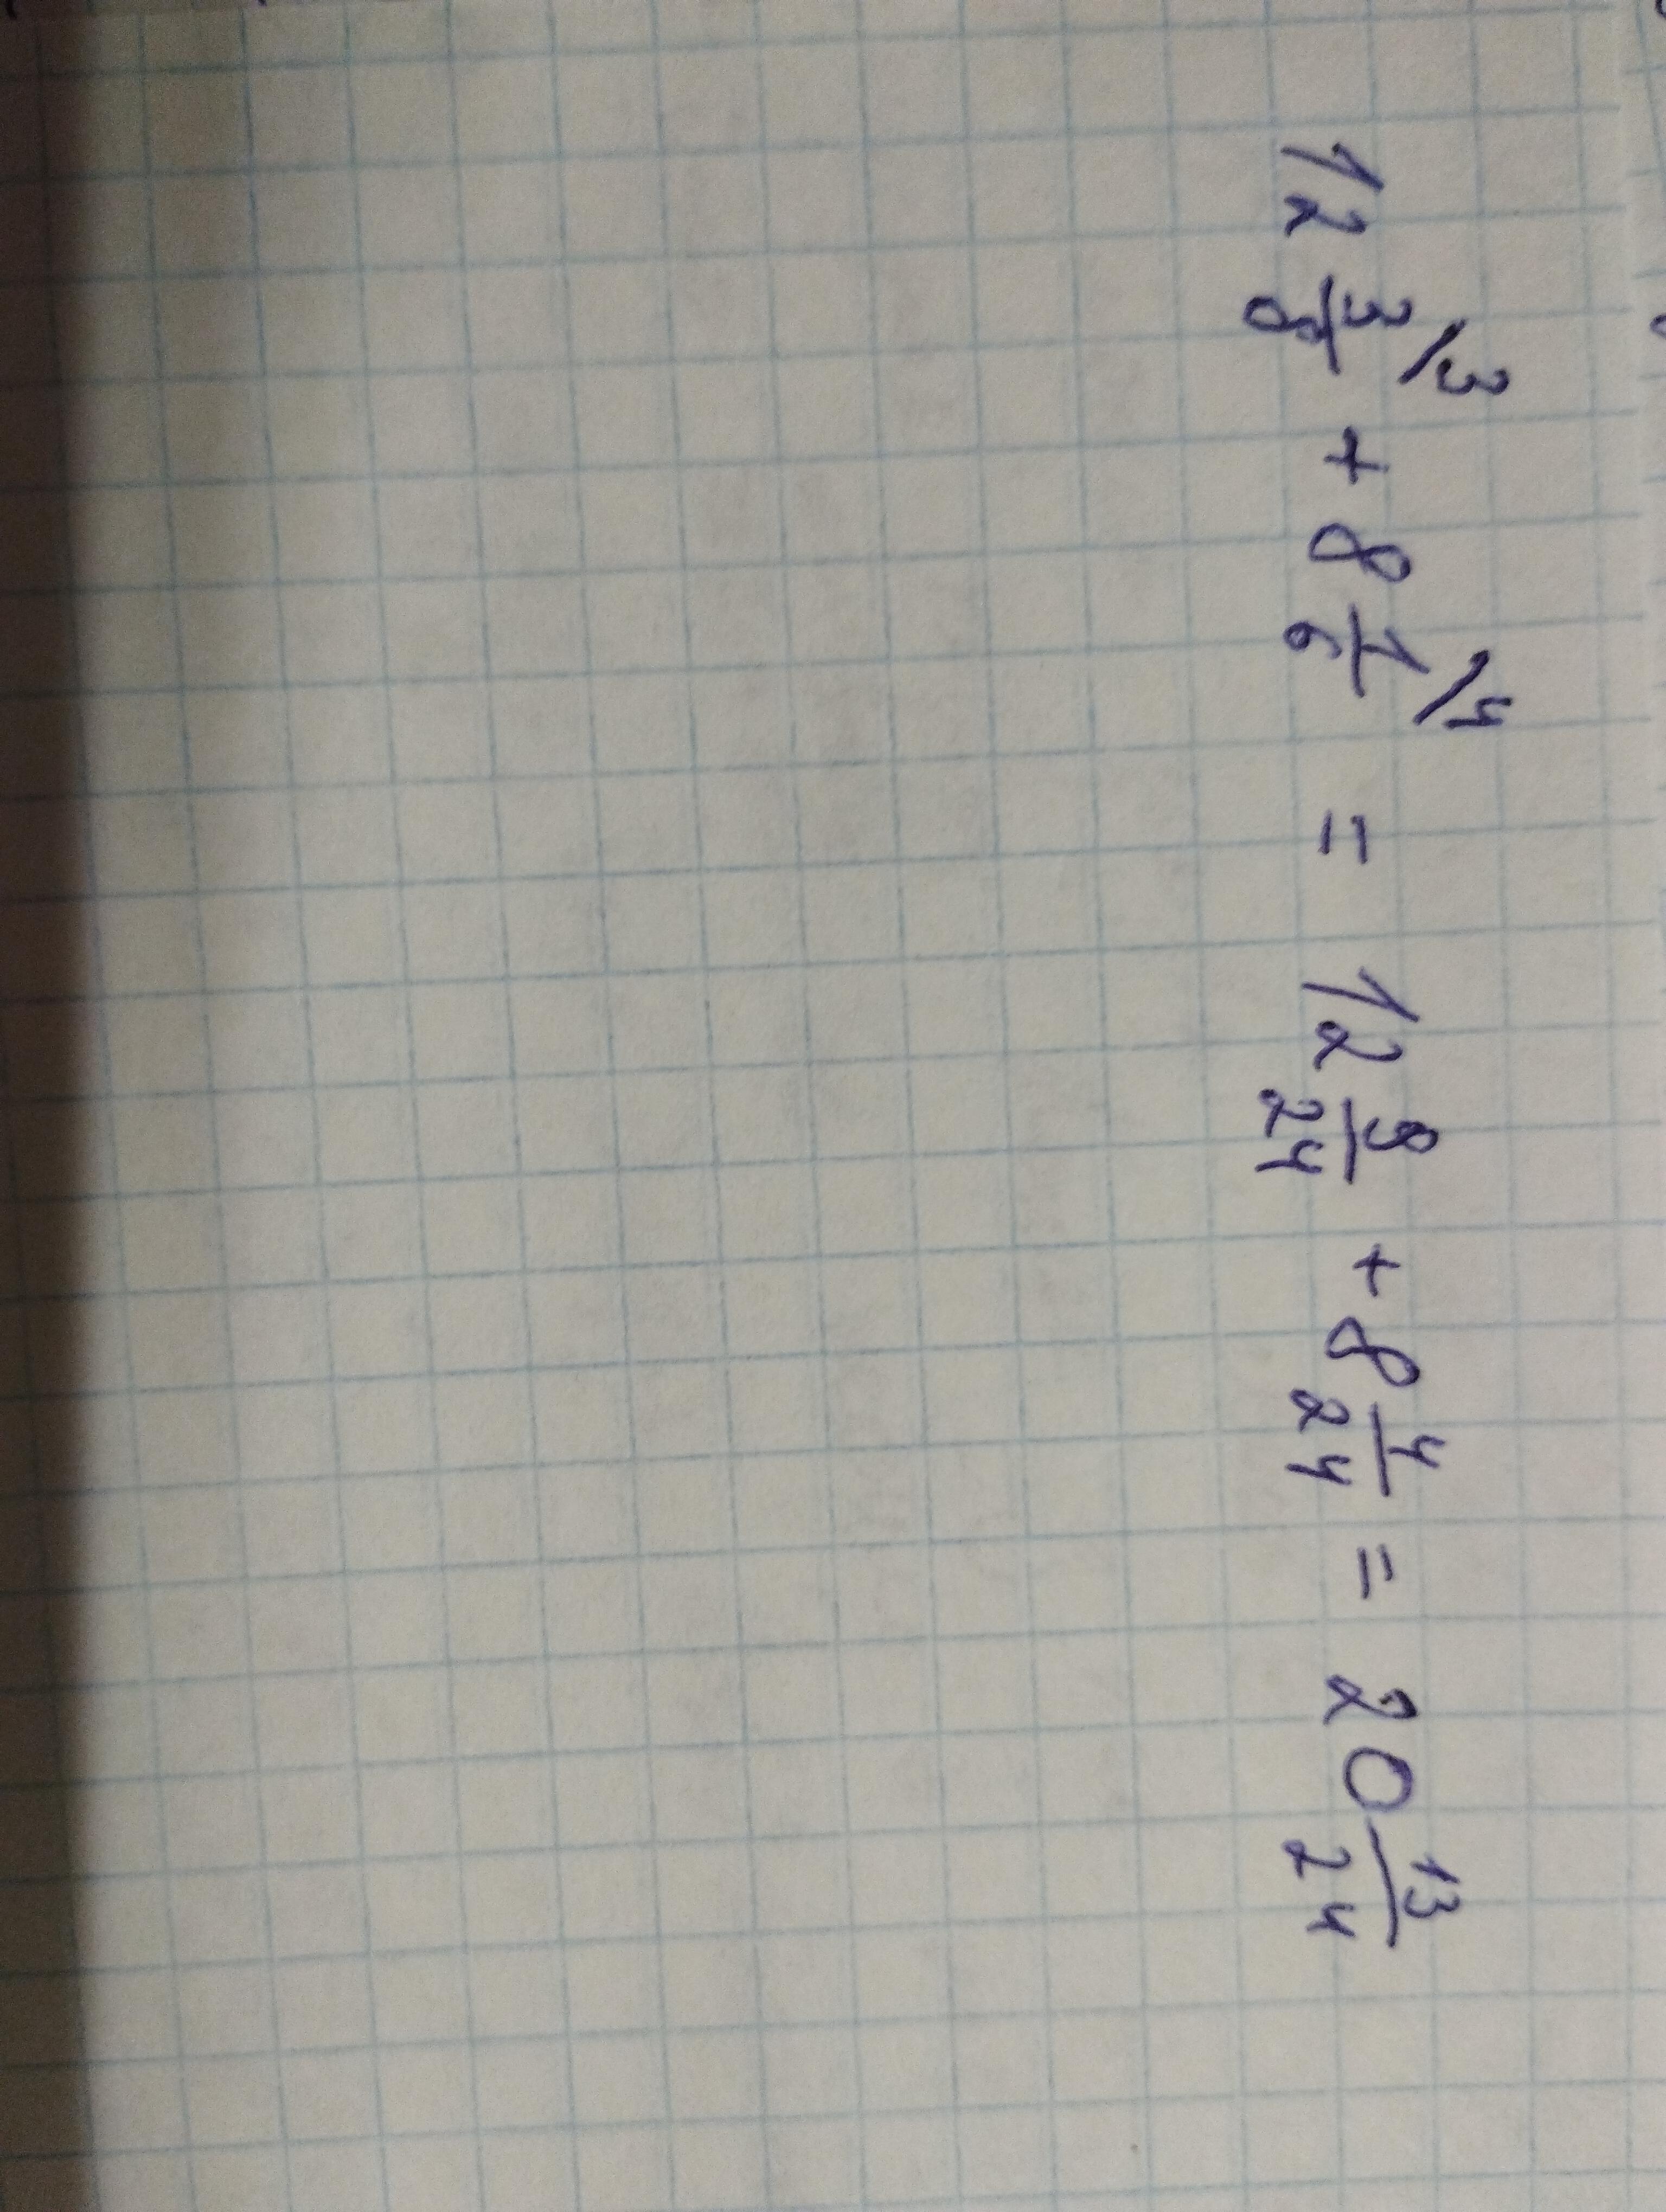 12 3/8 \3 + 8 1/6 \4 = 12 9/24 + 8 4/24 = 20 13/24